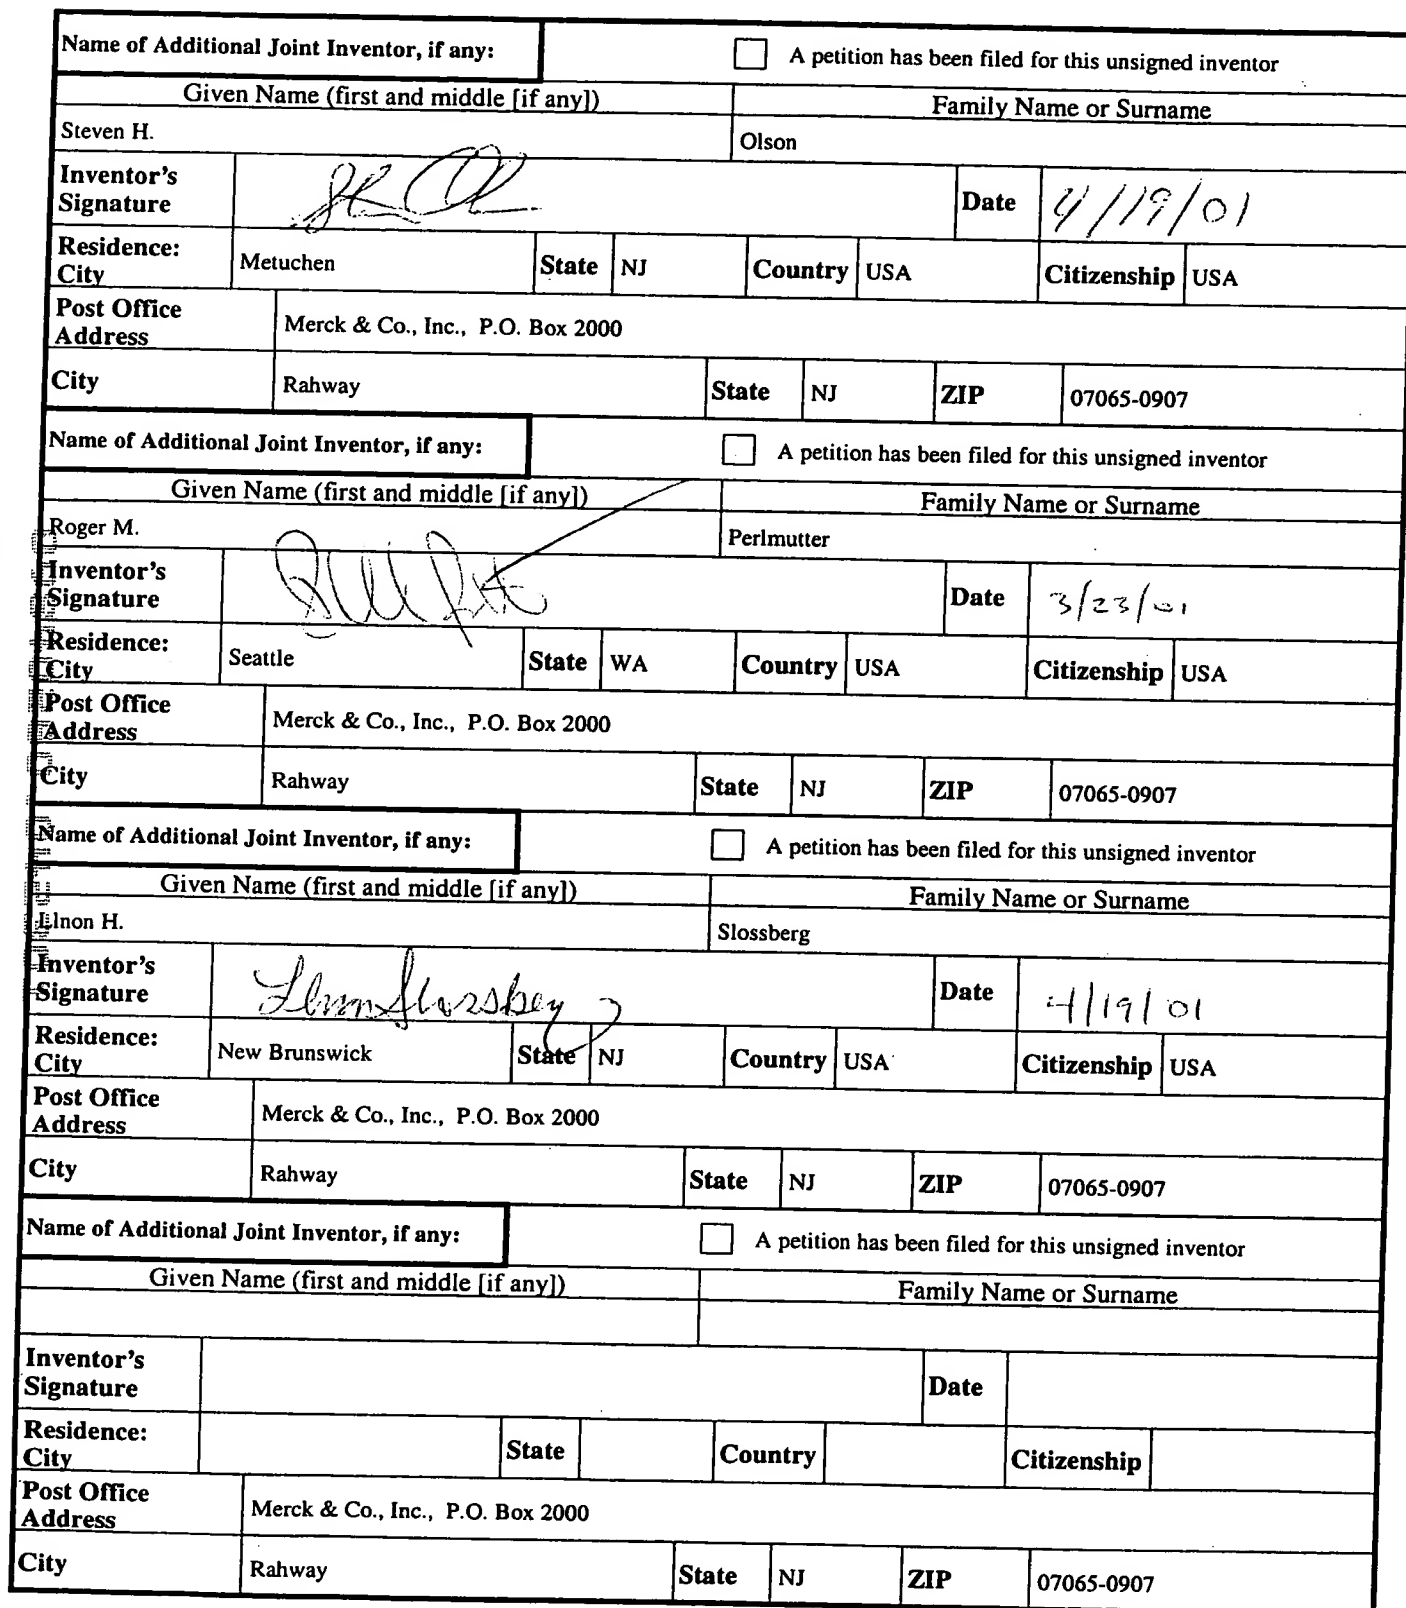 Name of Additional Joint Inventor, if any: A petition has been filed for this unsigned inventor
Given Name (first and middle [if any]) Family Name or Surname
Steven H. Olson
Inventor's Signature Date 4/19/01
Residence: City Metuchen State NJ Country USA Citizenship USA
Post Office Address Merck & Co., Inc., P.O. Box 2000
City Rahway State NJ ZIP 07065-0907
Name of Additional Joint Inventor, if any: A petition has been filed for this unsigned inventor
Given Name (first and middle [if any]) Family Name or Surname
Roger M. Perlmutter
Inventor's Signature Date 3/23/01
Residence: City Seattle State WA Country USA Citizenship USA
Post Office Address Merck & Co., Inc., P.O. Box 2000
City Rahway State NJ ZIP 07065-0907
Name of Additional Joint Inventor, if any: A petition has been filed for this unsigned inventor
Given Name (first and middle [if any]) Family Name or Surname
H. Slossberg
Inventor's Signature Slossberg Date 4/19/01
Residence: City New Brunswick State NJ Country USA Citizenship USA
Post Office Address Merck & Co., Inc., P.O. Box 2000
City Rahway State NJ ZIP 07065-0907
Name of Additional Joint Inventor, if any: A petition has been filed for this unsigned inventor
Given Name (first and middle [if any]) Family Name or Surname
Inventor's Signature Date
Residence: City State Country Citizenship
Post Office Address Merck & Co., Inc., P.O. Box 2000
City Rahway State NJ ZIP 07065-0907